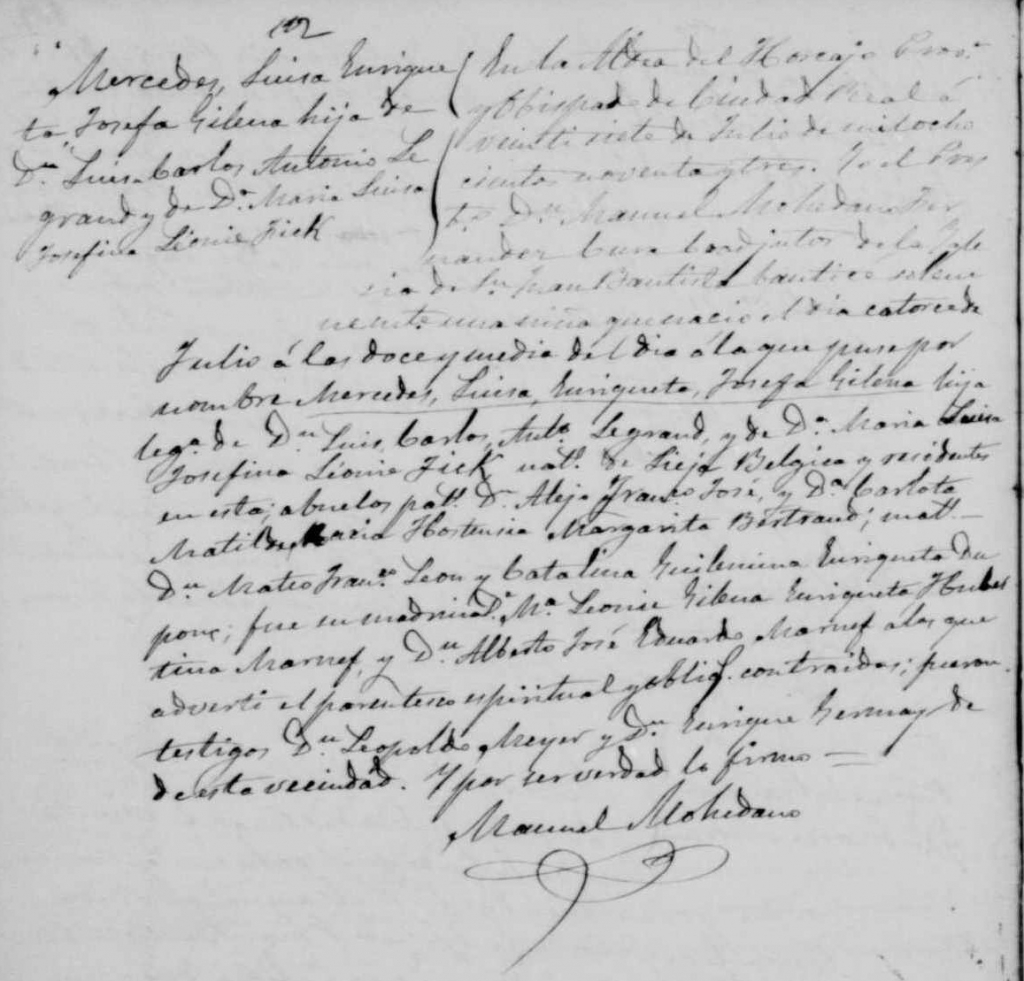 102
Mercedes, Luisa Enrique
ta Josefa Gilena hija de
Dn. Luis Carlos Antonio Le
grand y de Da. Maria Luisa
Josefina Léonie Fick
En la Aldea del Horcajo Prova.
y Obispado de Ciudad Real á
veinti siete de Julio de mil ocho
cientos noventa y tres. Yo el Pres
to. Dn. Manuel Mohedano Fer
nandez Cura Coadjutor de la Igle
sia de Sn. Juan Bautista bautice solem
nemte. una niña que nació el dia catorce de
Julio á las doce y media del dia á la que puse por
nombre Mercedes, Luisa, Enriqueta, Josefa Gilena hija
lega. de Dn. Luis, Carlos, Anto. Legrand, y de Da. Maria Luisa
Josefina Léonie Fick natl. de Lieja Belgica y residentes
en esta; abuelos patl. Dn. Alejo Franco José, y Da. Carlota
Matilde Maria Hortensia Margarita Bertrand; matl. —
Dn. Mateo Frano. Leon y Catalina Guilermina Enriqueta Du
pong; fue su madrina Da. Ma. Leonie Gilena Enriqueta Huber
tina Marnef, y Dn. Alberto José Eduardo Marnef á los que
adverti el parentesco espiritual y oblig. contraidas; fueron
testigos Dn. Leopoldo Meyer y Dn. Enrique Germay de
de esta vecindad. Y por ser verdad lo firmo —
Manuel Mohedano